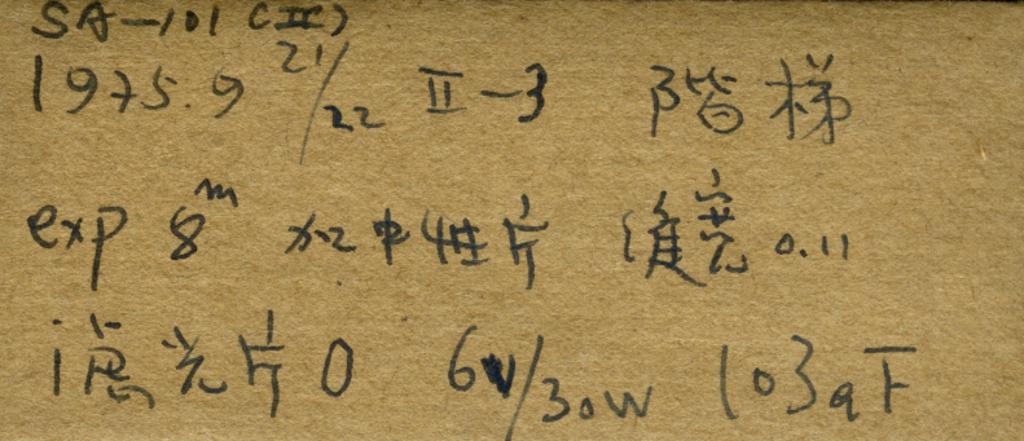 SA-101 (II)
1975.9 21/22 II-3 階梯
exp 8m 加中性片 缝宽 0.11
滤光片0 6V/30W 103aF